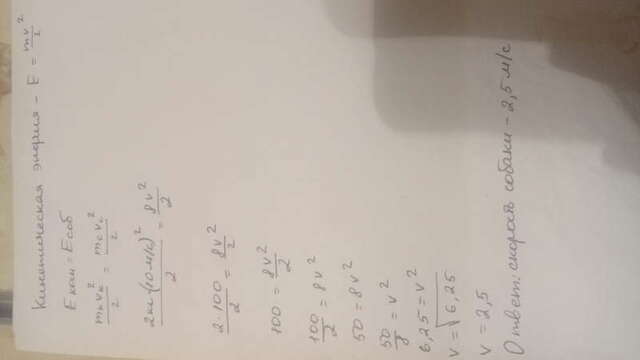 Кинетическая энергия - E = mv²/2
Eкош = Eсоб
mкvк²/2 = mсvс²/2
2кг·(10м/с)²/2 = 8v²/2
2·100/2 = 8v²/2
100 = 8v²/2
100/2 = 8v²
50 = 8v²
50/8 = v²
6,25 = v²
v = √6,25
v = 2,5
Ответ: скорость собаки - 2,5 м/с